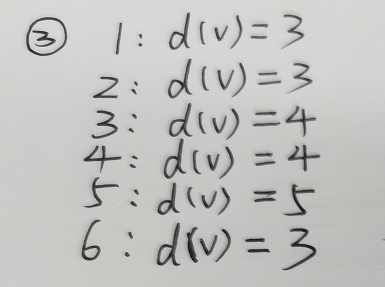 ③ 1: d(v) = 3
2: d(v) = 3
3: d(v) = 4
4: d(v) = 4
5: d(v) = 5
6: d(v) = 3